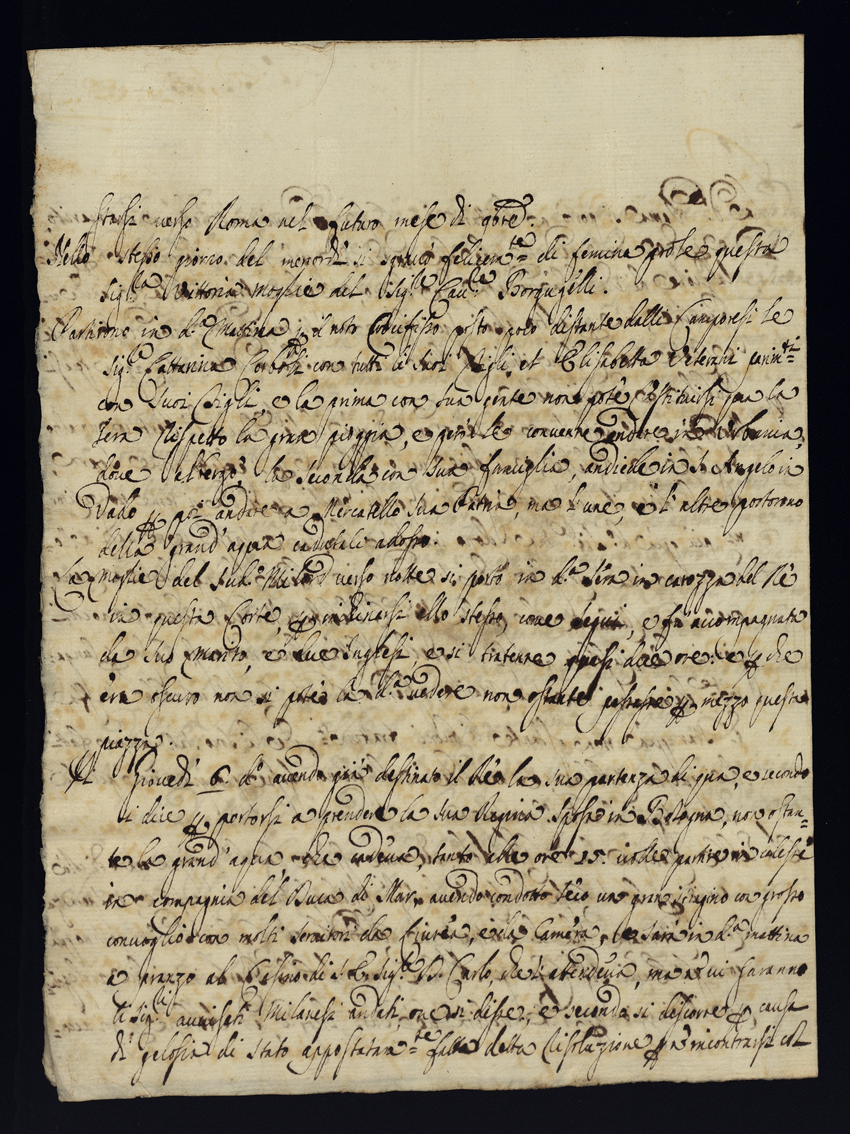 starsi verso Roma nel futuro mese di 9bre.
Nello stesso giorno del mercordì si sgravò felicem.te di femina prole questa
Sig.ra Vittoria moglie del Sig.re Cau.re Borgugelli.
Partirono in d.a Mattina p il nro Crocifisso posto poco distante dalli Camporesi le
Sig.re Cattarina con tutti li suoi figli, et Elisabetta Veterani parim.ti
con suoi figli, e la prima con sua gente non potè restituirsi qua la
sera rispetto la gran pioggia, e però le convenne andare in Urbania,
dove albergò, la seconda con sua famiglia, andiede in S. Angelo in
Vado p poi andare a Mercatello sua Patria, ma l'une, e l'altre portorono
della grand'aqua cadutali adosso.
La moglie del sud.o Milord verso notte si portò in d.a sera in carozza del Rè
in questa Corte, p inchinarsi allo stesso, come seguì, e fu accompagnata
da suo marito, e due Inglesi, e si trattenne quasi due ore: e p che
era oscuro non si potè la d.a vedere non ostante passasse p mezzo questa
piazza.
Al Giovedì 6 d.o avendo già destinato il Rè la sua partenza di qua, e secondo
si dice p portarsi a prendere la sua Regina Sposa in Bologna, non ostan=
te la grand'aqua che cadeva, tanto alle ore 15. volle partire in calesse
in compagnia del Duca di Mar, avendo condotto seco un gran strapino con grosso
convoglio con molti servitori da livrea, e da Camera, e sarà in d.a mattina
a pranzo al Casino di S. E. Sig.re D. Carlo, che l'attendeva, ma a vui saranno
li Sig.ri auuisati Milanesi andati, ove si disse, e secondo si discorre p causa
di gelosia di stato appostatam.te fatta detta p rincontrarsi col